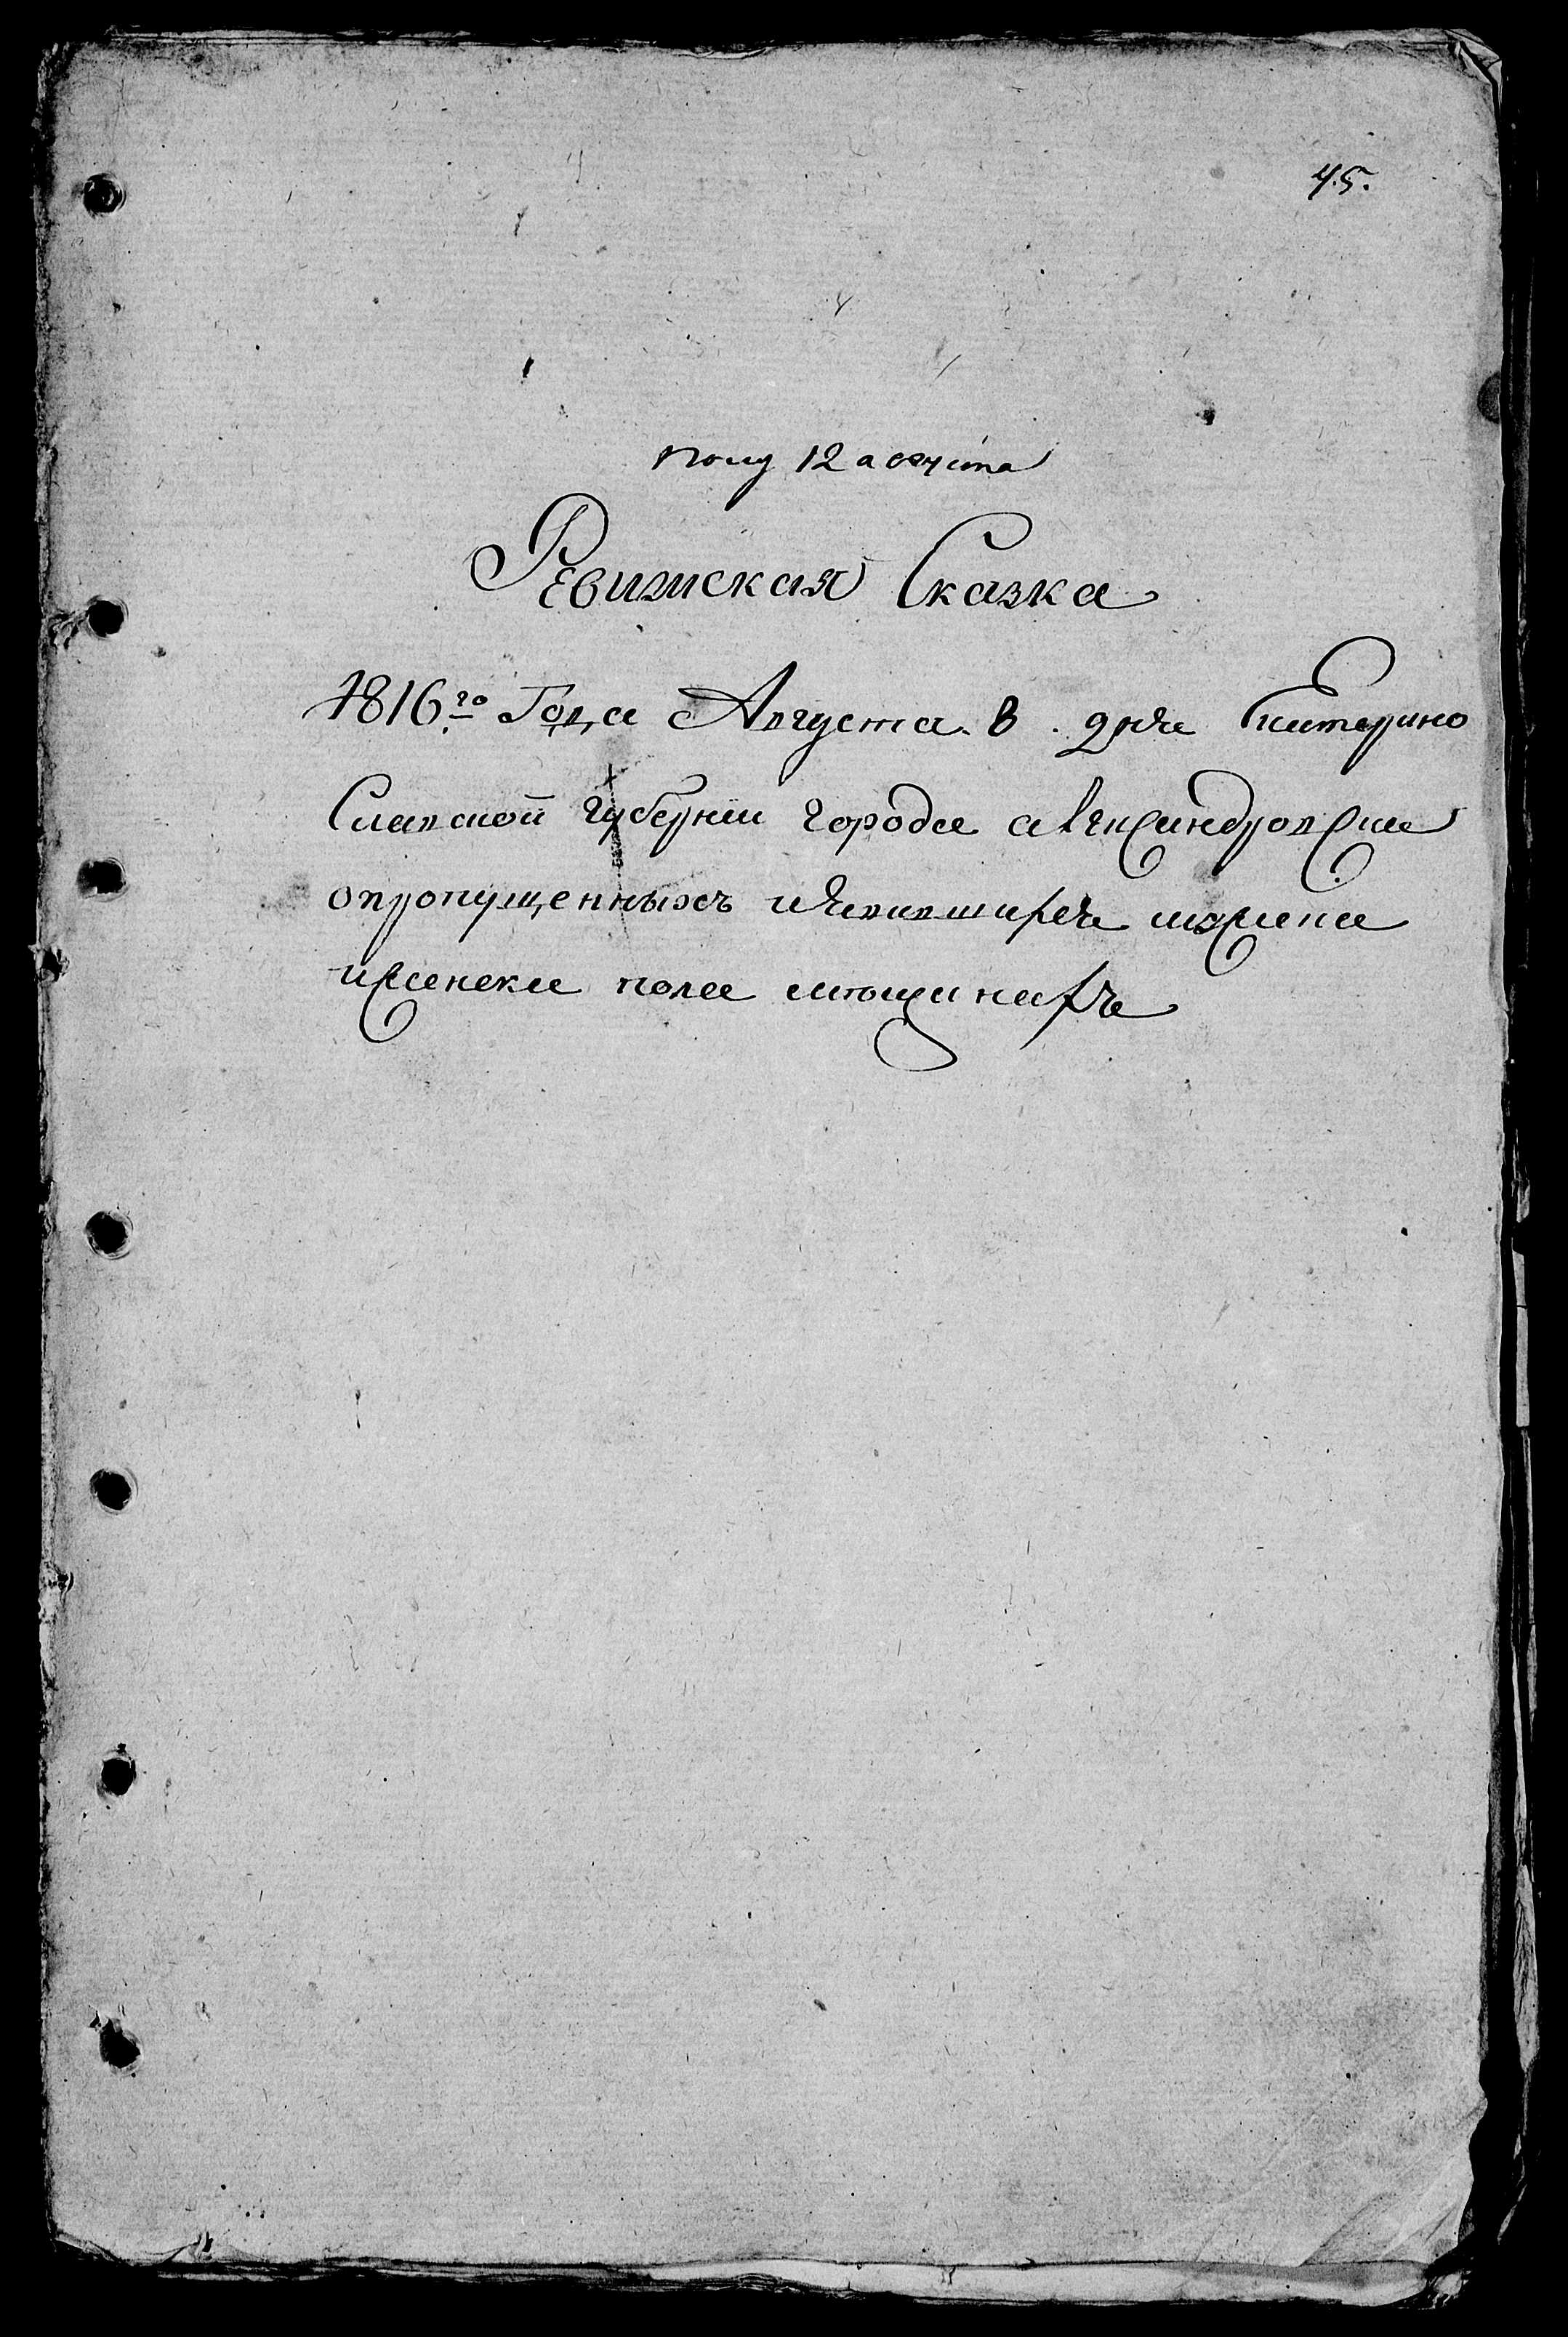 45.
полу 12 августа
Ревижская Сказка
1816го Года Августа 8 дня Екатерино
Славской губернии города александровска
опропущенныхъ иявившихся мужска
иженска пола мещанахъ